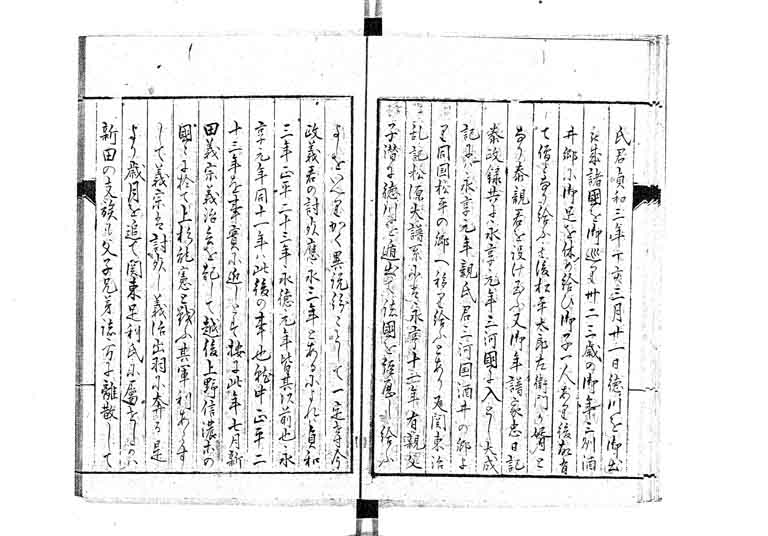 氏君貞和三年丁亥三月廿一日徳川を御出
有成諸國を御巡り廿二三歳の御年三列酒
井郷に御足を休め給ひ御子一人あり後故有
て僧となり給ふ其後松平太郎左衛門の婿と
なり泰親君を設け玉ふ又御年譜家忠日記
泰政録共に永享元年三河國に入とし大成
記に永享元年親氏君三河国酒井の郷よ
り同国松平の郷へ移り給ふとあり又関東治
乱記松源大譜系にハ永享十二年有親父
子潜に徳川を遁出て法國を経歴し給ふ
よしをいへりかく異説紛々として一定ならす今
政義君の討死應永三年とあるによれハ貞和
三年正平二十三年永徳元年皆其以前也永
享元年同十一年ハ此後の事也就中正平二
十三年を事實に近しとす按に此年七月新
田義宗義治兵を起して越後上野信濃等の
國々に於て上杉憲と戦ふ其軍利あらす
して義宗ハ討死し義治出羽に奔る是
より歳月を追て関東足利氏に屬せしかハ
新田の支族も父子兄弟誌方に離散して